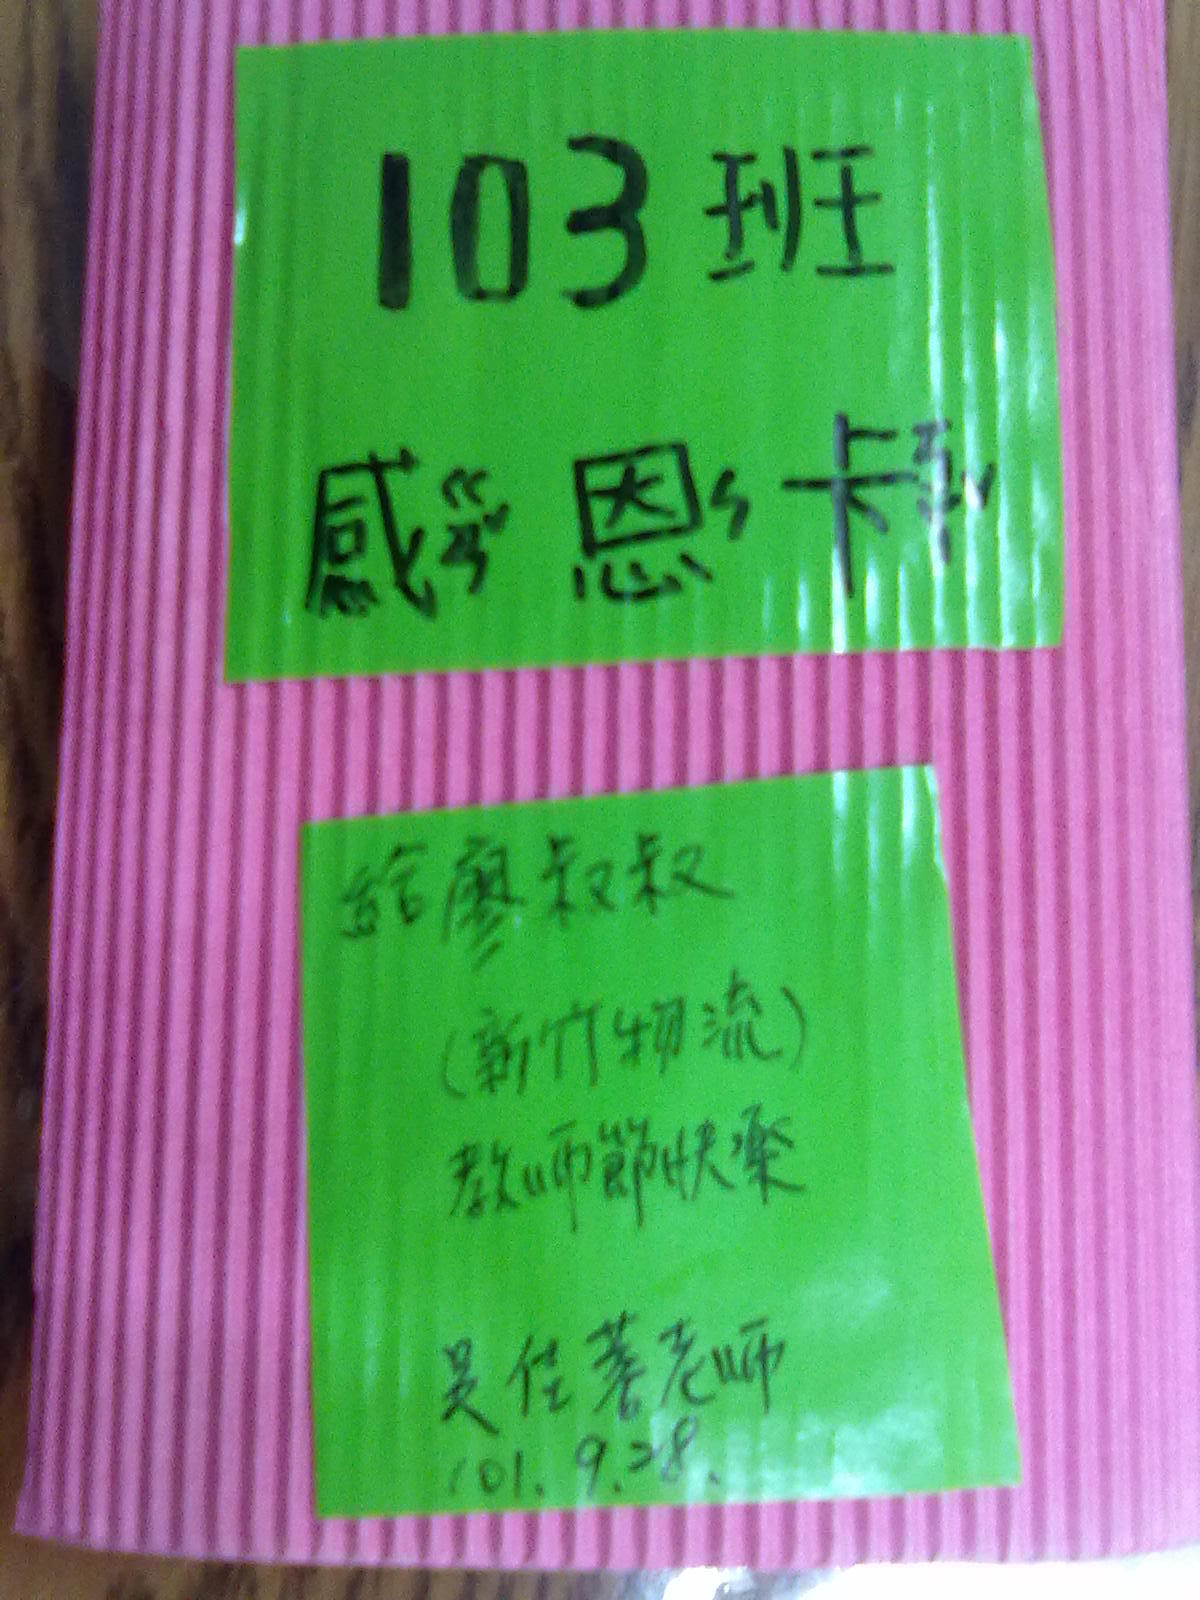 103班
感ㄍㄢˇ恩ㄣ卡ㄎㄚˇ
給廖叔叔
(新竹物流)
教師節快樂
吳佳蓍老師
101.9.28.